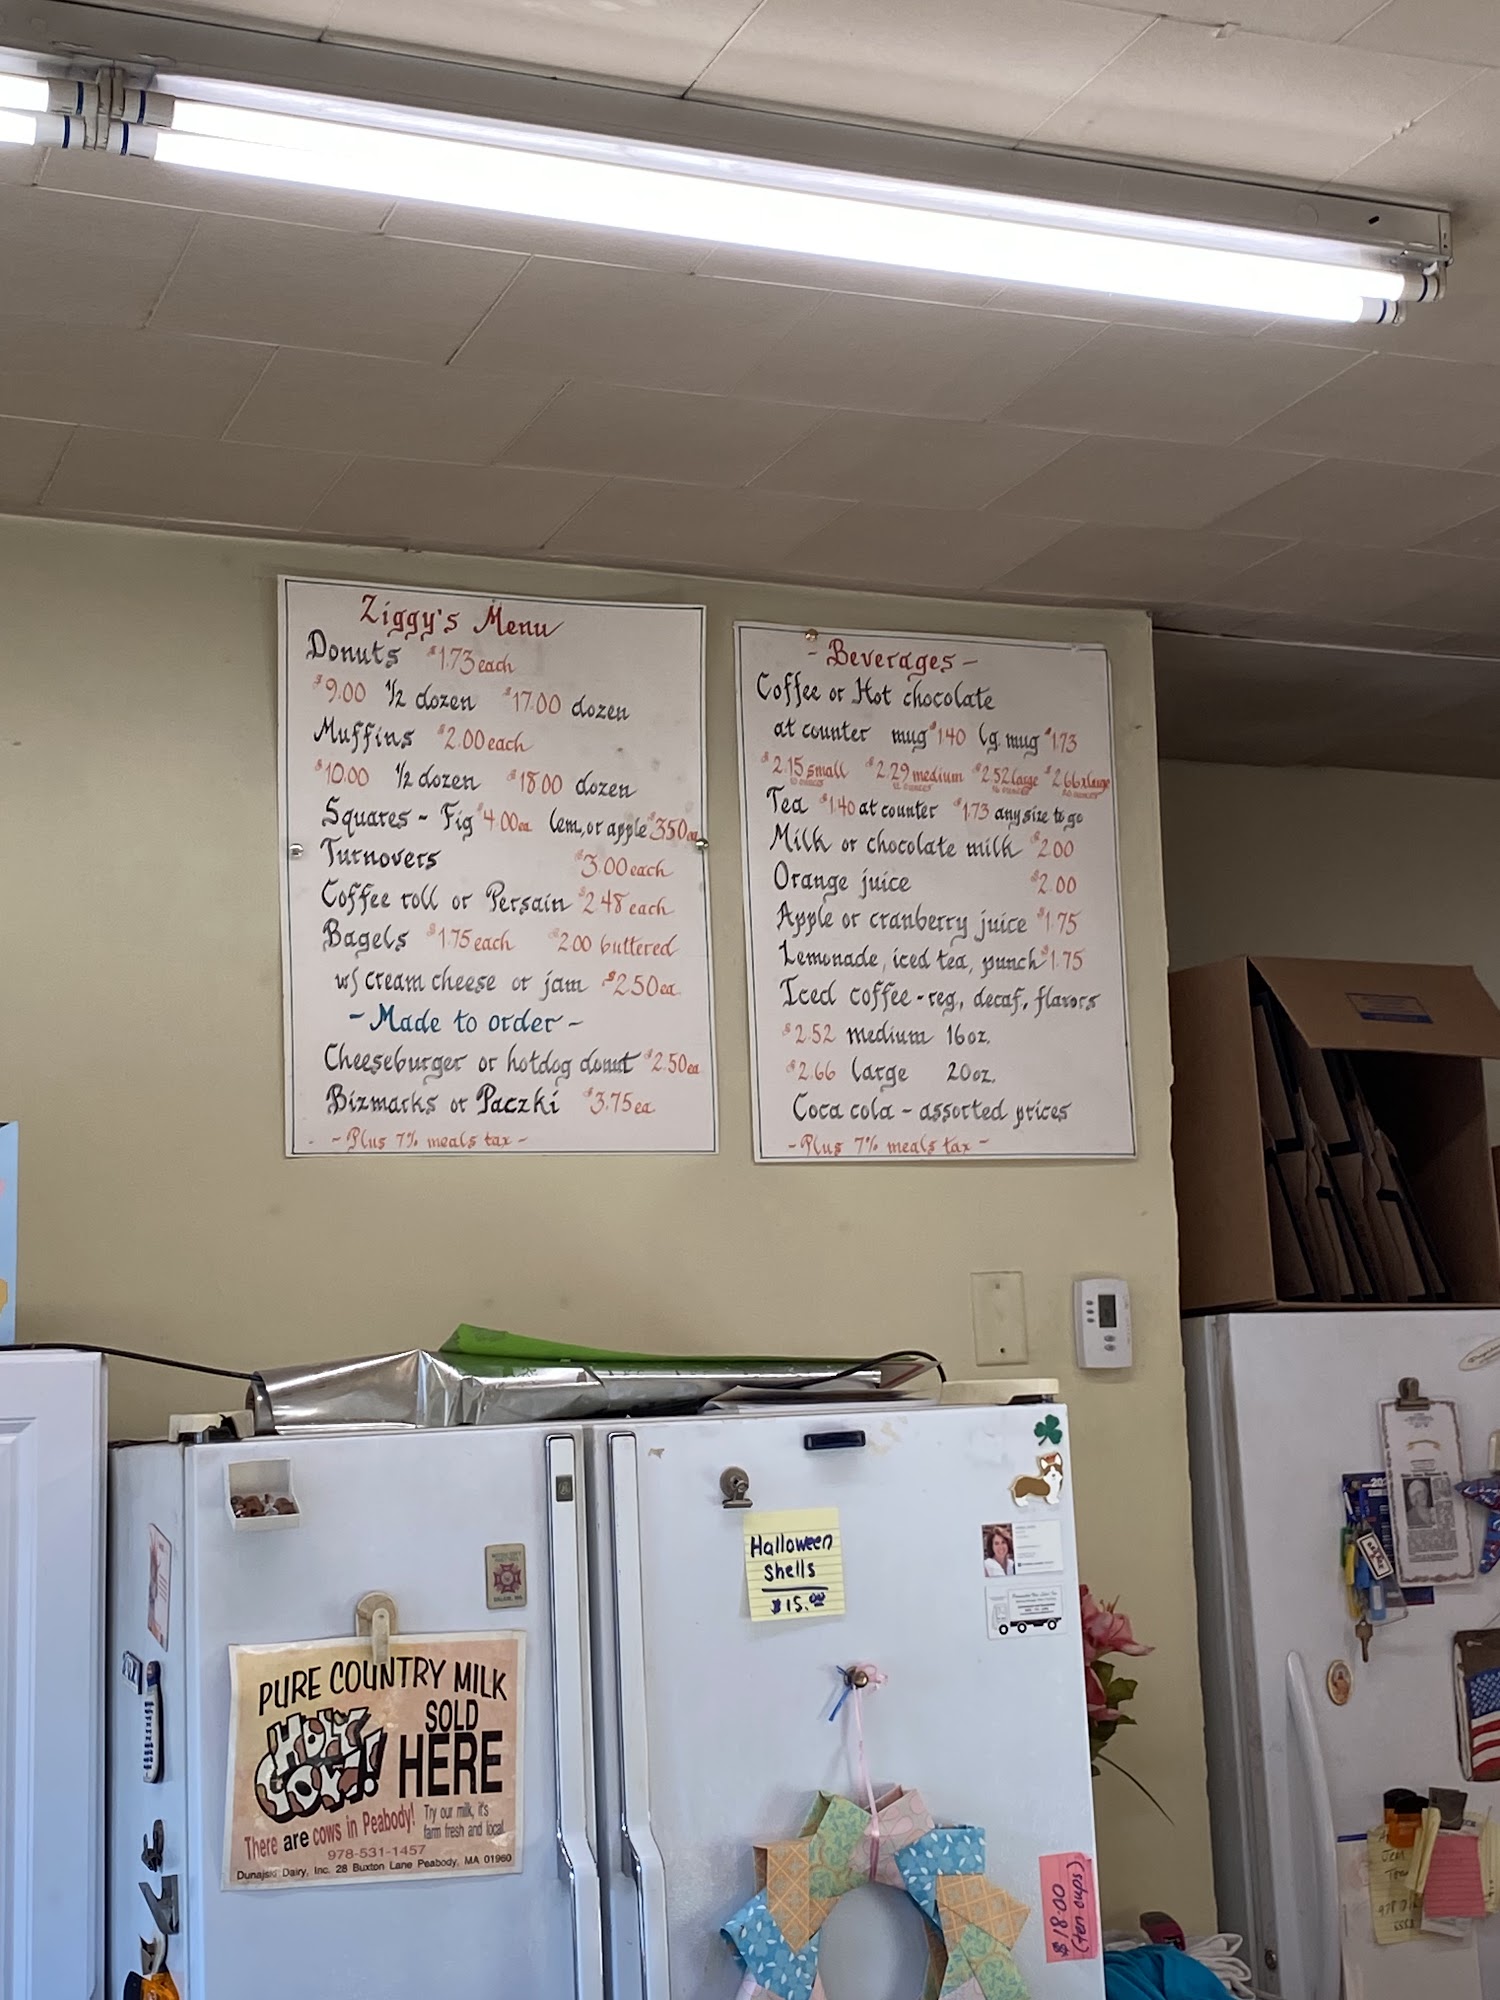 Ziggy's Menu
Donuts $1.73 each
$9.00 1/2 dozen $17.00 dozen
Muffins $2.00 each
$10.00 1/2 dozen $18.00 dozen
Squares - Fig $4.00ea lem, or apple $3.50ea
Turnovers $3.00 each
Coffee roll or Persain $2.48 each
Bagels $1.75 each $2.00 buttered
w/ cream cheese or jam $2.50ea.
- Made to order -
Cheeseburger or hotdog donut $2.50ea
Bizmarks or Paczki $3.75ea
- Plus 7% meals tax -
- Beverages -
Coffee or Hot chocolate
at counter mug $1.40 lg. mug $1.73
$2.15 small $2.29 medium $2.52 large $2.66 xlarge
10 ounces 12 ounces 16 ounces 20 ounces
Tea $1.40 at counter $1.73 any size to go
Milk or chocolate milk $2.00
Orange juice $2.00
Apple or cranberry juice $1.75
Lemonade, iced tea, punch $1.75
Iced coffee - reg., decaf, flavors
$2.52 medium 16oz.
$2.66 large 20oz.
Coca cola - assorted prices
- Plus 7% meals tax -
Halloween
Shells
$15.00
PURE COUNTRY MILK
HOLY COW!
SOLD
HERE
There are cows in Peabody!
Try our milk, it's
farm fresh and local.
978-531-1457
Dunajski Dairy, Inc. 28 Buxton Lane Peabody, MA 01960
$18.00
(ten cups)